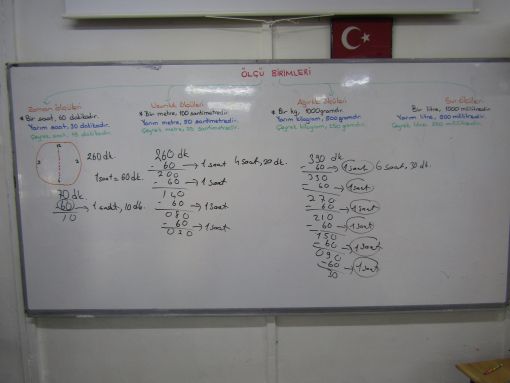 ÖLÇÜ BİRİMLERİ
Zaman ölçüleri
* Bir saat, 60 dakikadır.
Yarım saat, 30 dakikadır.
Çeyrek saat, 15 dakikadır.
Uzunluk ölçüleri
* Bir metre, 100 santimetredir.
Yarım metre, 50 santimetredir.
Çeyrek metre, 25 santimetredir.
Ağırlık ölçüleri
* Bir kg, 1000 gramdır.
Yarım kilogram, 500 gramdır.
Çeyrek kilogram, 250 gramdır.
Sıvı ölçüleri
Bir litre, 1000 mililitredir.
Yarım litre, 500 mililitredir.
Çeyrek litre, 250 mililitredir.
260 dk.
1 saat = 60 dk.
70 dk
- 60 → 1 saat, 10 dk.
10
260 dk
- 60 → 1 saat 4 saat, 20 dk.
200
- 60 → 1 saat
140
- 60 → 1 saat
080
- 60 → 1 saat
020
390 dk
- 60 → 1 saat 6 saat, 30 dk.
330
- 60 → 1 saat
270
- 60 → 1 saat
210
- 60 → 1 saat
150
- 60 → 1 saat
090
- 60 → 1 saat
30